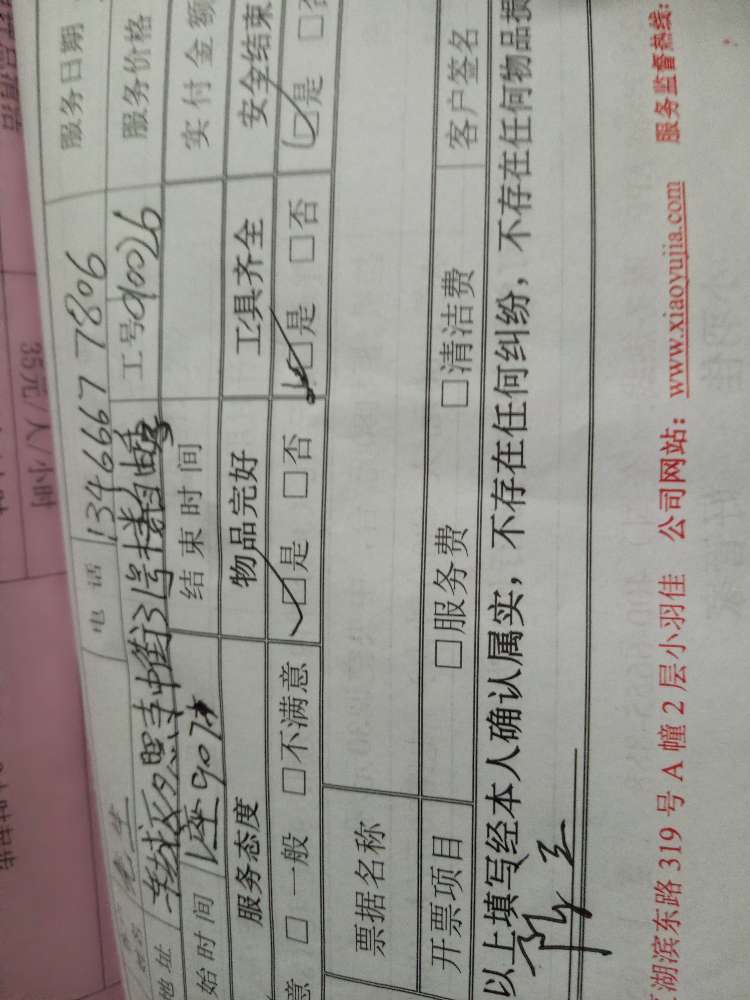 电 话 134 6667 7806 服务日期
地址 东城区夕照寺中街31号楼自由季 工号 010026 服务价格
1座907
始时间 结束时间 实付金额
服务态度 物品完好 工具齐全 安全结束
意 □ 一般 □不满意 □是 □否 □是 □否 □是 □否
票据名称
开票项目 □服务费 □清洁费 客户签名
以上填写经本人确认属实，不存在任何纠纷，不存在任何物品损
湖滨东路 319 号 A 幢 2 层小羽佳 公司网站：www.xiaoyujia.com 服务监督热线:
35元/人/小时